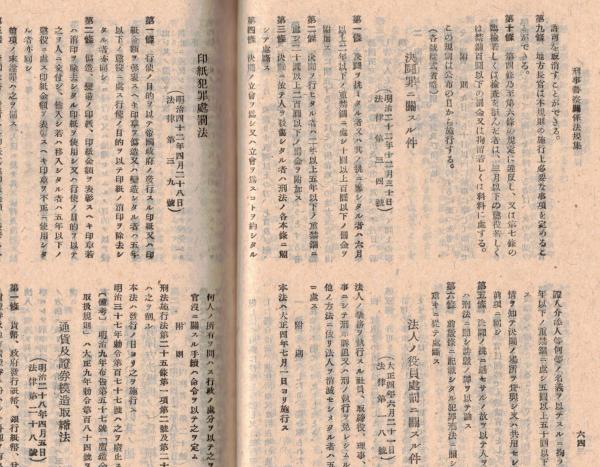 刑事警察關係法規集
六四
許可を取消すことができる。
第九條 地方長官は本規則の施行上必要な事項を定めるこ
とができる。
第十條 第四條乃至第六條の規定に違反し、又は第七條の
臨檢若しくは檢査を拒んだ者は、三月以下の懲役若しく
は禁錮百圓以下の罰金又は拘留若しくは科料に處する。
附則
この規則は公布の日から施行する。
決鬪罪ニ關スル件
(明治二十二年十二月三十日)
(法律第三四號)
第一條 決鬪ヲ挑ミタル者又ハ其ノ挑ニ應シタル者ハ六月
以上二年以下ノ重禁錮ニ處シ十圓以上百圓以下ノ罰金ヲ
附加ス
第二條 決鬪ヲ行ヒタル者ハ二年以上五年以下ノ重禁錮ニ
處シ二十圓以上二百圓以下ノ罰金ヲ附加ス
第三條 決鬪ニ依テ人ヲ殺傷シタル者ハ刑法ノ各本條ニ照
シテ處斷ス
第四條 決鬪ノ立會ヲ爲シ又ハ立會ヲ爲スコトヲ約シタル
證人介添人等何等ノ名義ヲ以テスルニ拘ラ
年以下ノ重禁錮ニ處シ五圓以上五十圓以下
情ヲ知テ決鬪ノ場所ヲ貸與シ又ハ供用セシ
第五條 決鬪ノ挑ニ應セサルノ故ヲ以テ人ヲ
ハ刑法ニ照シ誹毀ノ罪ヲ以テ論ス
第六條 前數條ニ記載シタル犯罪刑法ニ照シ
重キニ從テ處斷ス
法人ノ役員處罰ニ關スル件
(大正四年六月二十一日)
(法律第一八號)
法人ノ業務ヲ執行スル社員、取締役、理事、
事ニシテ刑事訴追又ハ刑ノ執行ヲ免レシムル
他ノ方法ニ依リ法人ヲ消滅セシメタル者ハ五
ニ處ス
附則
本法ハ大正四年七月一日ヨリ施行ス
印紙犯罪處罰法
(明治四十二年四月二十八日)
(法律第三九號)
第一條 行使ノ目的ヲ以テ帝國政府ノ發行スル印紙又ハ印
紙金額ヲ表彰スヘキ印章ヲ僞造又ハ變造シタル者ハ五年
以下ノ懲役ニ處ス行使ノ目的ヲ以テ印紙ノ消印ヲ除去シ
タル者亦同シ
第二條 僞造、變造ノ印紙、印紙金額ヲ表彰スヘキ印章若
ハ消印ヲ除去シタル印紙ヲ使用シ又ハ行使ノ目的ヲ以テ
之ヲ人ニ交付シ、輸入シ若ハ移入シタル者ハ五年以下ノ
懲役ニ處ス印紙金額ヲ表彰スヘキ印章ヲ不正ニ使用シタ
ル者亦同シ
何人ノ所有ヲ問ハス行政ノ處分ヲ以テ之ヲ
官沒ニ關スル手續ハ命令ヲ以テ之ヲ定ム
附則
刑法施行法第二十五條第一項第二號及第二十
ハ之ヲ削ル
本法ハ發行ノ日ヨリ之ヲ施行ス
明治三十七年勅令第百七十七號ハ之ヲ廢止ス
(備考)
取扱規則」ハ大正九年勅令第百八十四號ヲ
通貨及證券模造取締法
(明治二十八年四月五日)
(法律第二十八號)
第一條 貨幣、政府發行紙幣、銀行紙幣、兌